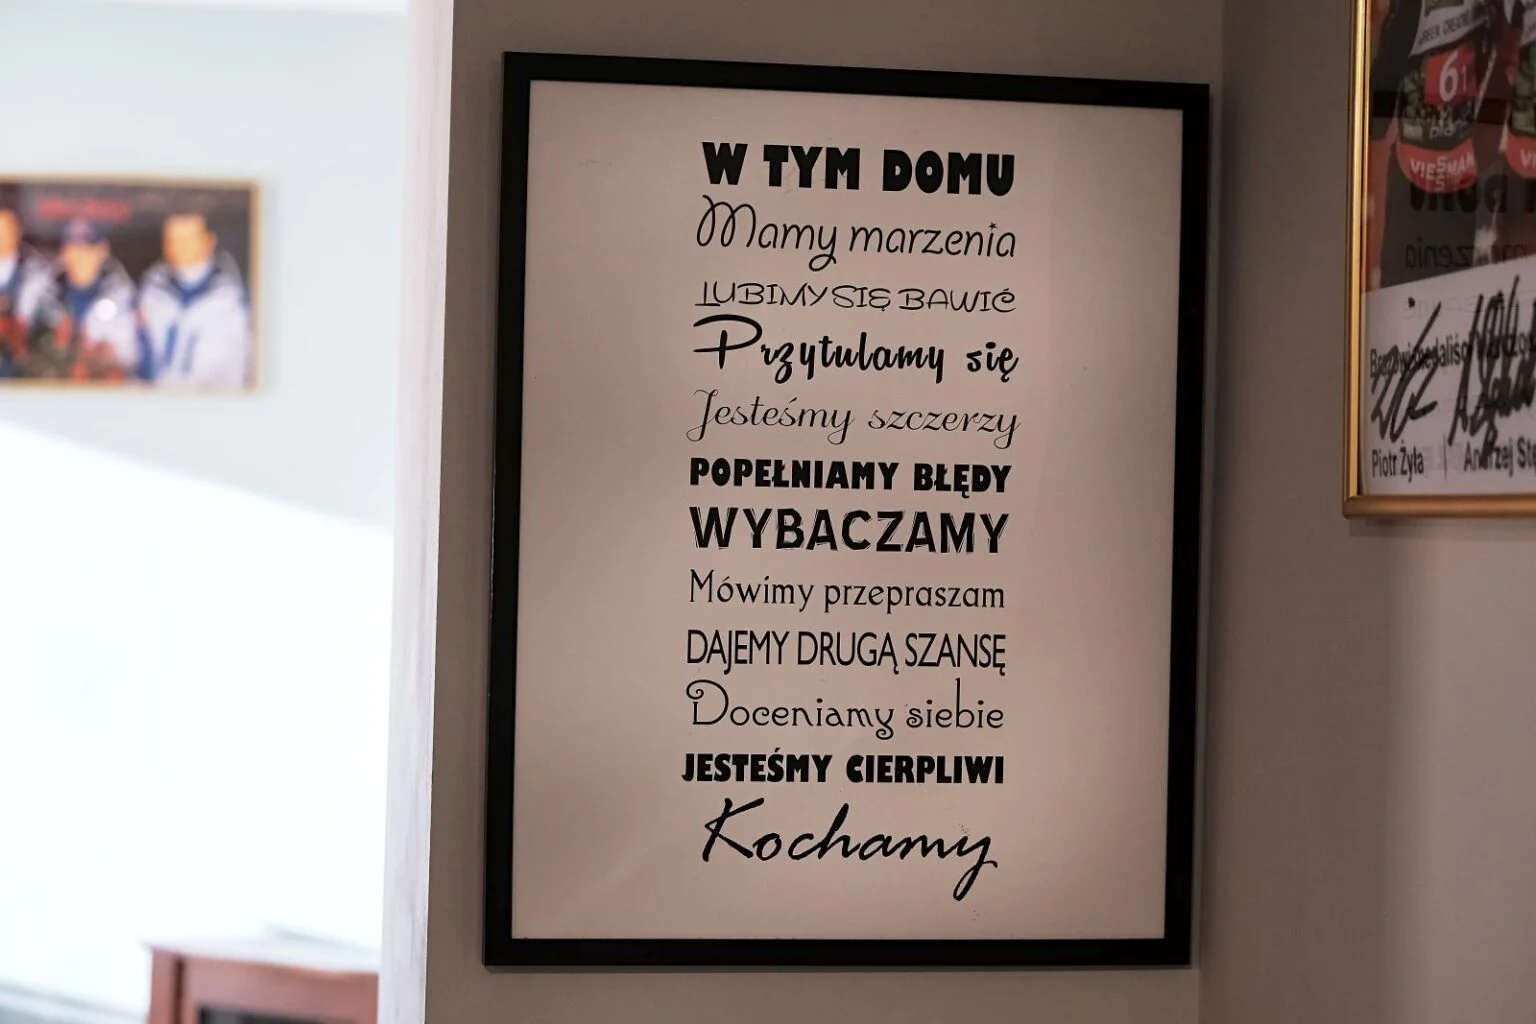 W TYM DOMU
Mamy marzenia
LUBIMY SIĘ BAWIĆ
Przytulamy się
Jesteśmy szczerzy
POPEŁNIAMY BŁĘDY
WYBACZAMY
Mówimy przepraszam
DAJEMY DRUGĄ SZANSĘ
Doceniamy siebie
JESTEŚMY CIERPLIWI
Kochamy
61
VIESSMAN
Piotr Żyła | Andrzej